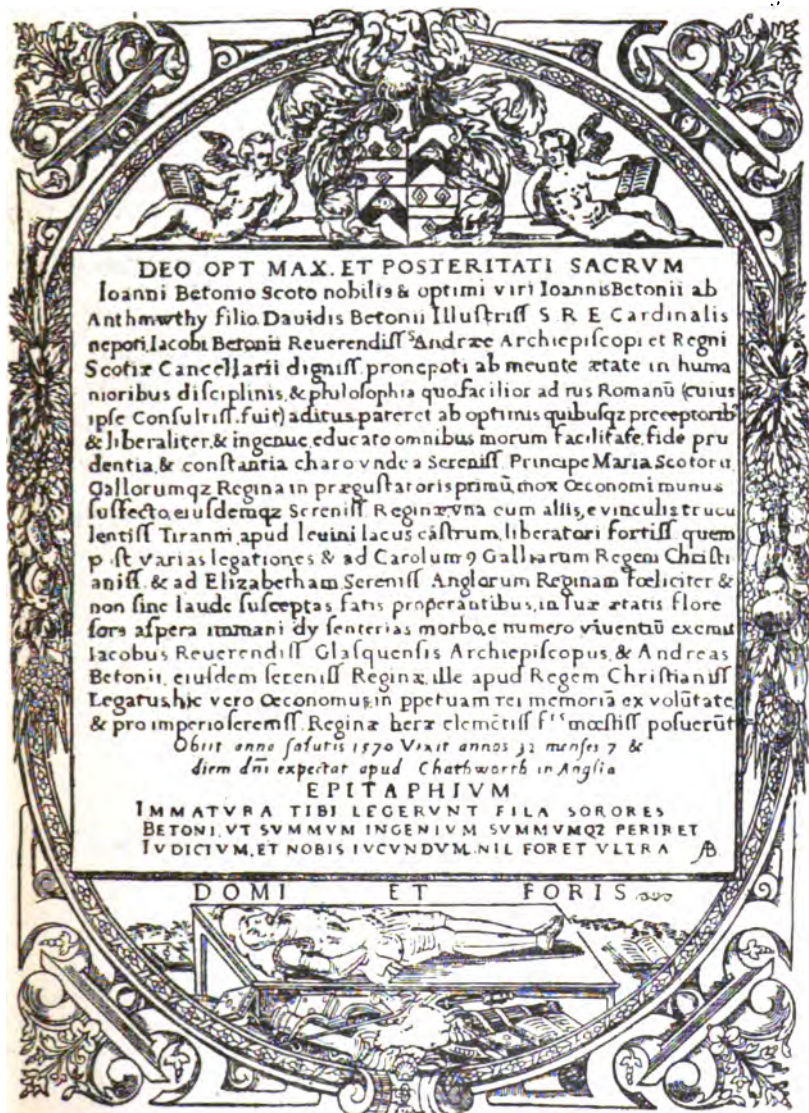 DEO OPT MAX. ET POSTERITATI SACRVM
Ioanni Betonio Scoto nobilis & optimi viri Ioannis Betonii ab
Anthmwthy filio. Dauidis Betonii Illustriss S R E Cardinalis
nepoti, Iacobi Betonii Reuerendiss S Andreæ Archiepiscopi et Regni
Scotiæ Cancellarii digniss. pronepoti ab ineunte ætate in huma
nioribus disciplinis, & philosophia quo facilior ad ius Romanū (cuius
ipse Consultiss. fuit) aditus pareret ab optimis quibusqz preceptorib9
& liberaliter, & ingenue, educato omnibus morum facilitate, fide pru
dentia, & constantia charo vnde a Sereniss. Principe Maria Scotorū,
Gallorumqz Regina in prægustatoris primū, mox Œconomi munus
suffecto, eiusdemqz Sereniss Reginæ, vna cum aliis, e vinculis trucu
lentiss Tiranni, apud leuini lacus cāstrum, liberatori fortiss quem
p st varias legationes & ad Carolum 9 Galliarum Regem Christi
aniss. & ad Elizabetham Sereniss Anglorum Reginam fœliciter &
non sine laude susceptas fatis properantibus, in suæ ætatis flore
sors aspera immani dysenterias morbo, e numero viuentiū exemit
Iacobus Reuerendiss Glasquensis Archiepiscopus, & Andreas
Betonii, eiusdem sereniss Reginæ, ille apud Regem Christianiss
Legatus, hic vero Œconomus, in ppetuam rei memoriā ex volūtate
& pro imperio sereniss. Reginæ heræ clemētiss frs mœstiss posuerūt
Obiit anno salutis 1570 Vixit annos 32 menses 7 &
diem dñi expectat apud Chathworth in Anglia
EPITAPHIVM
IMMATVRA TIBI LEGERVNT FILA SORORES
BETONI, VT SVMMVM INGENIVM SVMMVMQZ PERIRET
IVDICIVM, ET NOBIS IVCVNDVM, NIL FORET VLTRA AB
DOMI ET FORIS